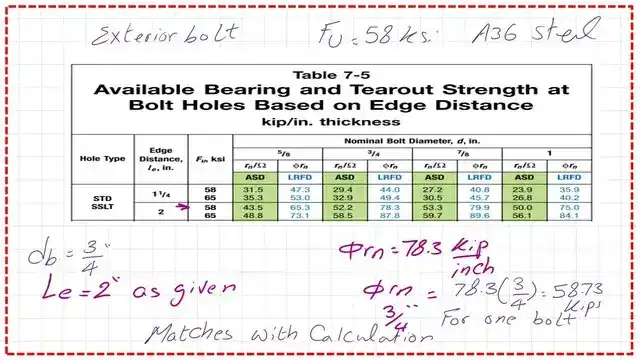 Exterior bolt FU = 58 ksi A36 steel
Table 7-5
Available Bearing and Tearout Strength at
Bolt Holes Based on Edge Distance
kip/in. thickness
Hole Type Edge Distance, le, in. Fu, ksi Nominal Bolt Diameter, d, in.
5/8 3/4 7/8 1
rn/Ω ϕrn rn/Ω ϕrn rn/Ω ϕrn rn/Ω ϕrn
ASD LRFD ASD LRFD ASD LRFD ASD LRFD
STD SSLT 1 1/4 58 31.5 47.3 29.4 44.0 27.2 40.8 23.9 35.9
65 35.3 53.0 32.9 49.4 30.5 45.7 26.8 40.2
2 58 43.5 65.3 52.2 78.3 53.3 79.9 50.0 75.0
65 48.8 73.1 58.5 87.8 59.7 89.6 56.1 84.1
db = 3/4"
Le = 2" as given
Φrn = 78.3 kip/inch
Φrn 3/4" = 78.3 (3/4) = 58.73 kips
For one bolt
Matches with Calculation